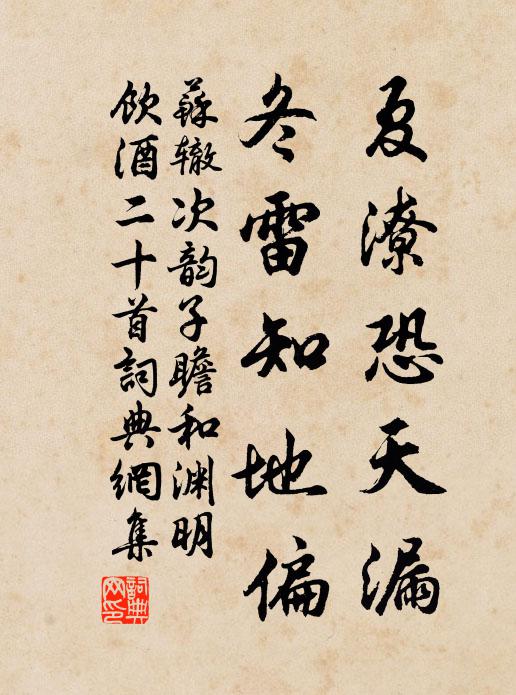 夏潦恐天漏
冬雷知地偏
蘇辙次韵子瞻和渊明
飲酒二十首詞典網集